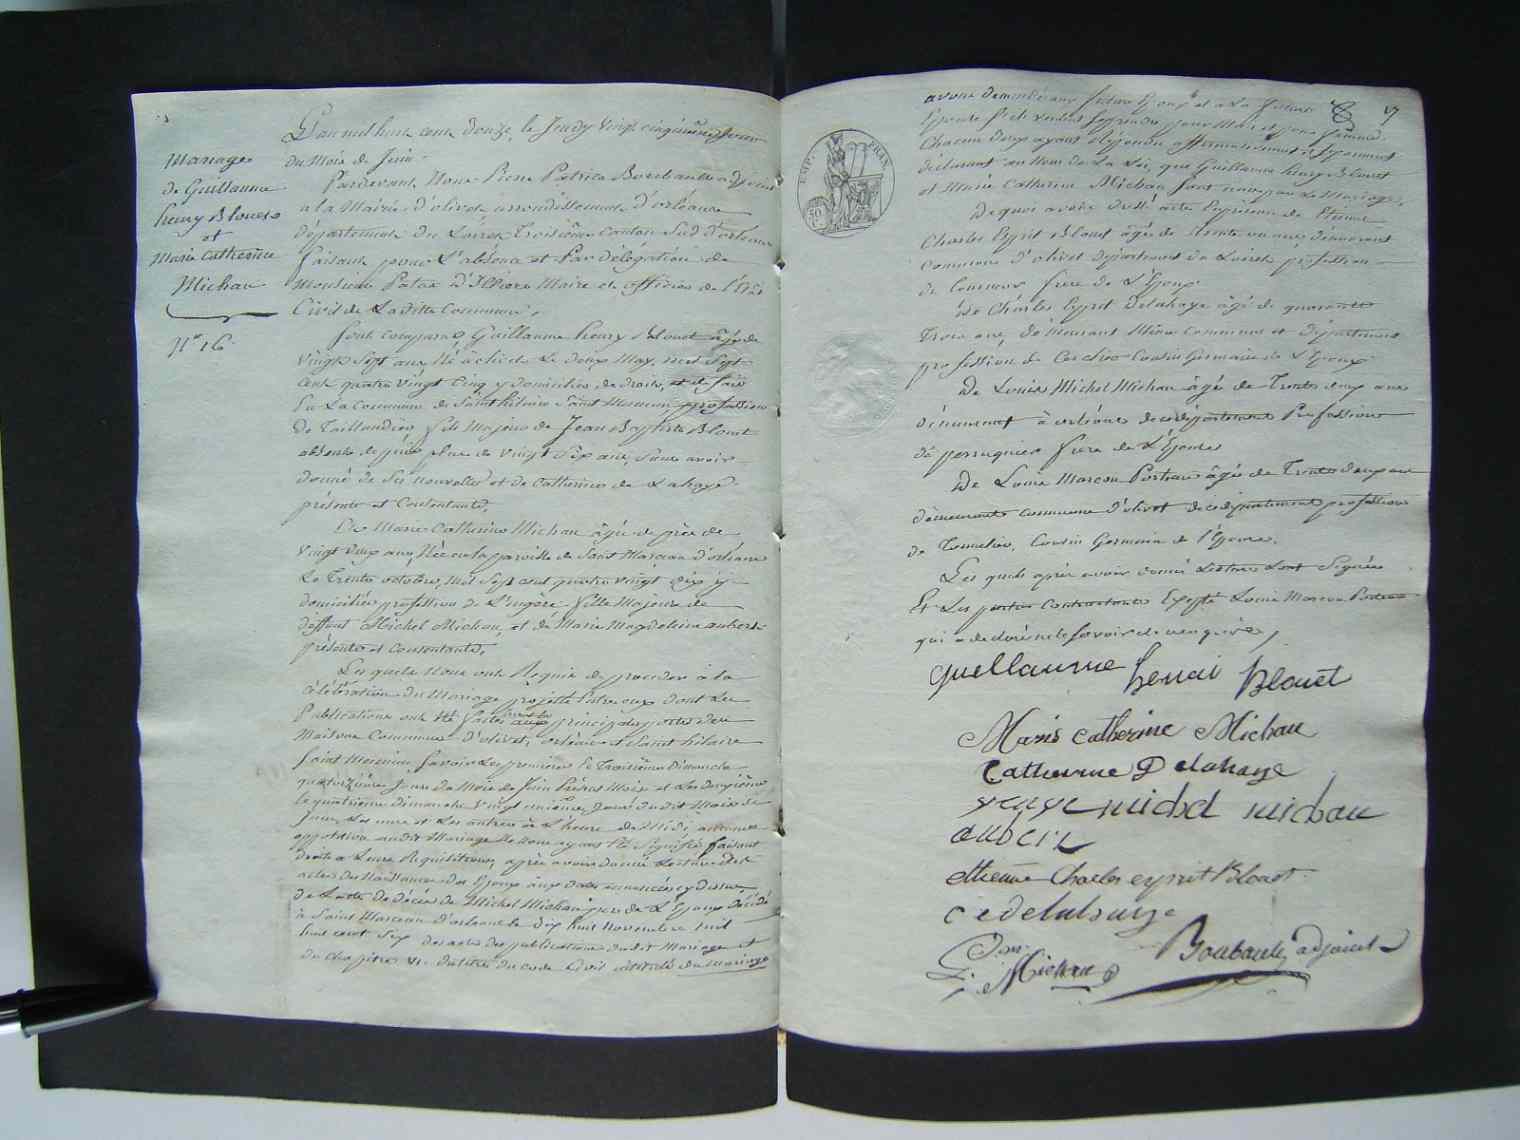 Mariage
de Guillaume
henry Blouet
et
Marie Catherine
Michau
N° 16.
L'an mil huit cent douze, le Jeudy vingt cinquième Jour
du Mois de Juin.
Pardevant Nous Pierre Patrice Boubault adjoint
a la Mairie d'olivet arrondissement d'orléans
département du Loiret Troisième canton Sud d'orléans
faisant pour L'absence et Par délégation de
Monsieur Patas D'Illiers Maire et officier de l'Etat
Civil de La ditte Commune.
Sont comparus Guillaume henry Blouet âgé de
vingt Sept ans, Né à le deux May mil Sept
cent quatre vingt Cinq y domicilié de droit, et de fait
En La Commune de Saint hilaire Saint Mesmin, profession
de Taillandier fils Majeur de Jean Baptiste Blouet
absent depuis plus de vingt Six ans, Sans avoir
donné de Ses nouvelles et de Catherine de Lahaye
présente et Consentante.
Et Marie Catherine Michau âgée de près de
vingt deux ans, Née en la paroisse de Saint Marceau d'orléans
Le Trente octobre mil Sept cent quatre vingt dix y
domiciliée profession de Lingère fille Majeure de
deffunt Michel Michau, et de Marie Magdeleine aubert
présente et Consentante,
Les quels Nous ont Requis de proceder à la
Célébration du Mariage projetté Entre eux dont Les
Publications ont été faites devant les principales portes des
Maisons Communes d'olivet, orléans et Saint hilaire
Saint Mesmin, Savoir Les premières le Troisième dimanche
quatorzième Jour du Mois de Juin Présent Mois et Les deuxièmes
le quatrième dimanche vingt unième Jour du dit Mois de
Juin, Les unes et Les autres à L'heure de Midi, aucune
opposition au dit Mariage Ne Nous ayant été Signifiée faisant
droit a Leurs Requisitions, après avoir donné Lecture des
actes de Naissance des Epoux aux dates énoncées cy dessus
de L'acte de décès de Michel Michau père de L'Epouse décédé
à Saint Marceau d'orléans le dix huit novembre mil
huit cent Six des actes des publications du dit Mariage et
du chapitre VI. du titre du code Civil intitulé du Mariage
17
avons demandé aux futurs Epoux et a La future
Epouse S'ils veulent Se prendre pour Mari et pour femme
Chacun d'eux ayant Répondu affirmativement et Séparément
déclarons au Nom de La Loi, que Guillaume henry Blouet
et Marie Catherine Michau Sont unis par Le Mariage,
De quoi avons dressé acte En présence de Etienne
Charles Esprit Blouet âgé de Trente un ans, demeurant
Commune d'olivet département du Loiret profession
de frere de L'Epoux.
De Charles Esprit Delahaye âgé de quarante
Trois ans, demeurant Même Commune et département
profession de Cousin Germain de L'Epoux
De Louis Michel Michau âgé de Trente deux ans
demeurant à orléans de ce département Profession
de perruquier frere de L'Epouse
De Louis Marcou Porteau âgé de Trente deux ans
demeurant Commune d'olivet de ce département profession
de Tonnelier, Cousin Germain de l'Epouse.
Les quels après avoir donné Lecture Sont Signées
Et Les parties Contractantes Excepté Louis Marcou Porteau
qui a declaré ne le Savoir de ce enquis,
guellaume henri blouet
Marie catherine Michau
catherine Delahaye
veuve michel michau
etienne Charles esprit blouet
c e delahaye
L. Michau
Boubault adjoint
EMP. FRAN.
50